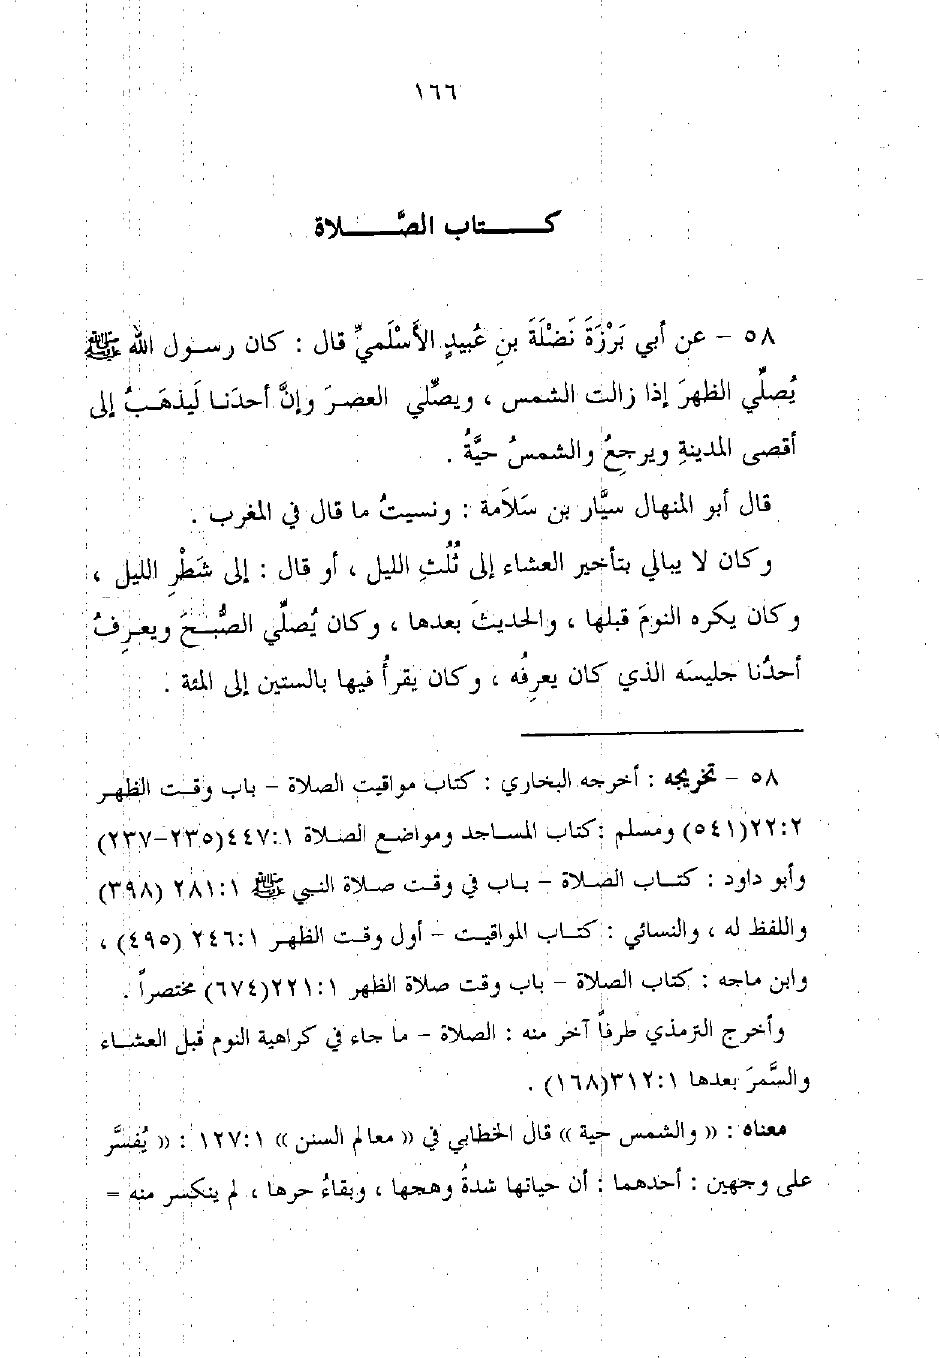 ١٦٦
كتاب الصَّلاة
٥٨ - عن أبي بَرْزَةَ نَضْلَةَ بنِ عُبيدٍ الأَسْلَميِّ قال : كان رسول الله ﷺ
يُصلِّي الظهرَ إذا زالت الشمس ، ويصلِّي العصرَ وإنَّ أحدَنا لَيذهَبُ إلى
أقصى المدينةِ ويرجِعُ والشمسُ حيَّةُ .
قال أبو المنهال سيَّار بن سَلاَمة : ونسيتُ ما قال في المغرب .
وكان لا يبالي بتأخير العشاء إلى ثُلُثِ الليل ، أو قال : إلى شَطْرِ الليل ،
وكان يكره النومَ قبلها ، والحديثَ بعدها ، وكان يُصلِّي الصُّبحَ ويعرِفُ
أحدُنا جليسَه الذي كان يعرِفُه ، وكان يقرأُ فيها بالستين إلى المئة .
٥٨ - تخريجه : أخرجه البخاري : كتاب مواقيت الصلاة - باب وقت الظهر
٢٢:٢(٥٤١) ومسلم :كتاب المساجد ومواضع الصلاة ٤٤٧:١(٢٣٥-٢٣٧)
وأبو داود : كتاب الصلاة - باب في وقت صلاة النبي ﷺ ٢٨١:١ (٣٩٨)
واللفظ له ، والنسائي : كتاب المواقيت - أول وقت الظهر ٢٤٦:١ (٤٩٥) ،
وابن ماجه : كتاب الصلاة - باب وقت صلاة الظهر ٢٢١:١(٦٧٤) مختصراً .
وأخرج الترمذي طرفاً آخر منه : الصلاة - ما جاء في كراهية النوم قبل العشاء
والسَّمرَ بعدها ٣١٢:١(١٦٨) .
معناه : « والشمس حية » قال الخطابي في « معالم السنن » ١٢٧:١ : « يُفسَّر
على وجهين : أحدهما : أن حياتها شدةُ وهجها ، وبقاءُ حرها ، لم ينكسر منه =